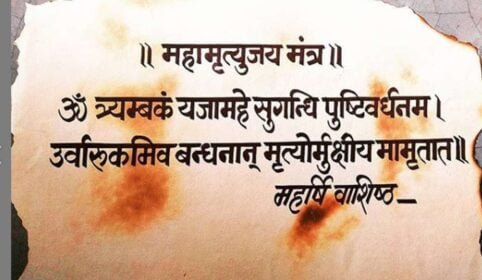 ॥ महामृत्युजय मंत्र ॥
ॐ त्र्यम्बकं यजामहे सुगन्धि पुष्टिवर्धनम ।
उर्वारुकमिव बन्धनान् मृत्योर्मुक्षीय मामृतात ॥
महर्षि वाशिष्ठ _